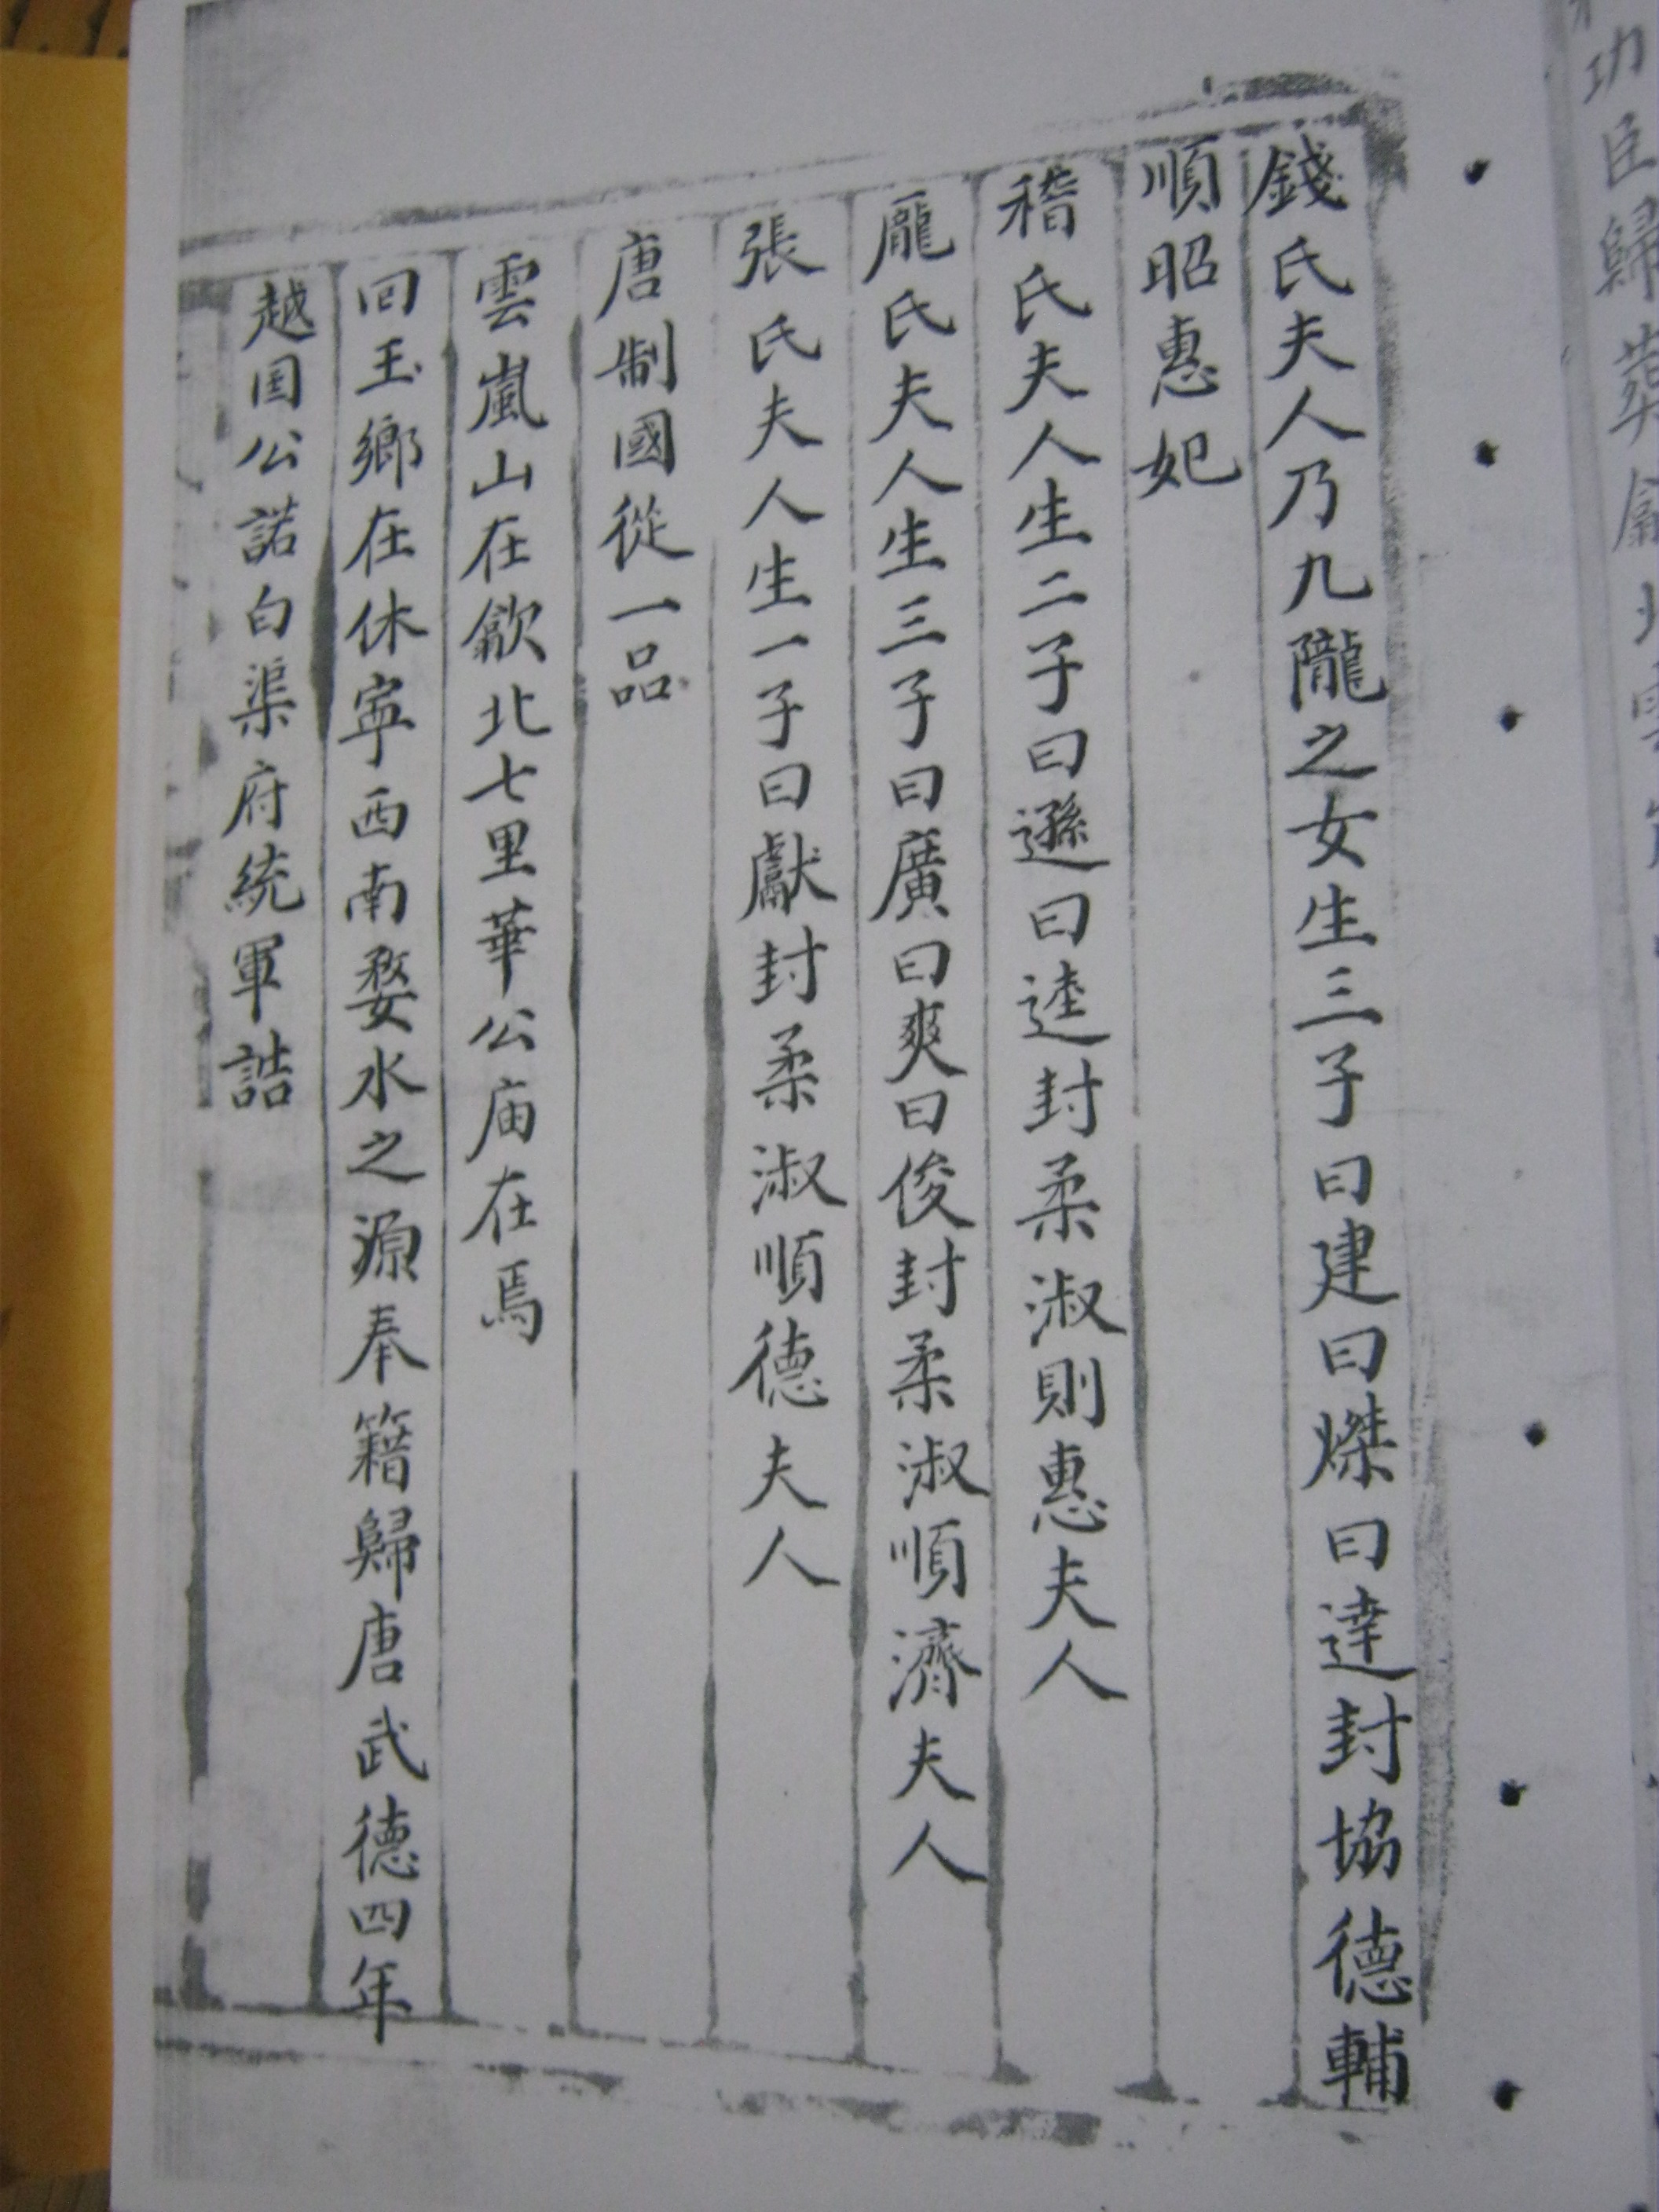 功臣歸葬歙北雲
錢氏夫人乃九隴之女生三子曰建曰㷮曰達封協德輔
順昭惠妃
稽氏夫人生二子曰遜曰逵封柔淑則惠夫人
龐氏夫人生三子曰廣曰爽曰俊封柔淑順濟夫人
張氏夫人生一子曰獻封柔淑順德夫人
唐制國從一品
雲嵐山在歙北七里華公庙在焉
回玉鄉在休寧西南婺水之源奉籍歸唐武德四年
越国公誥白渠府統軍誥